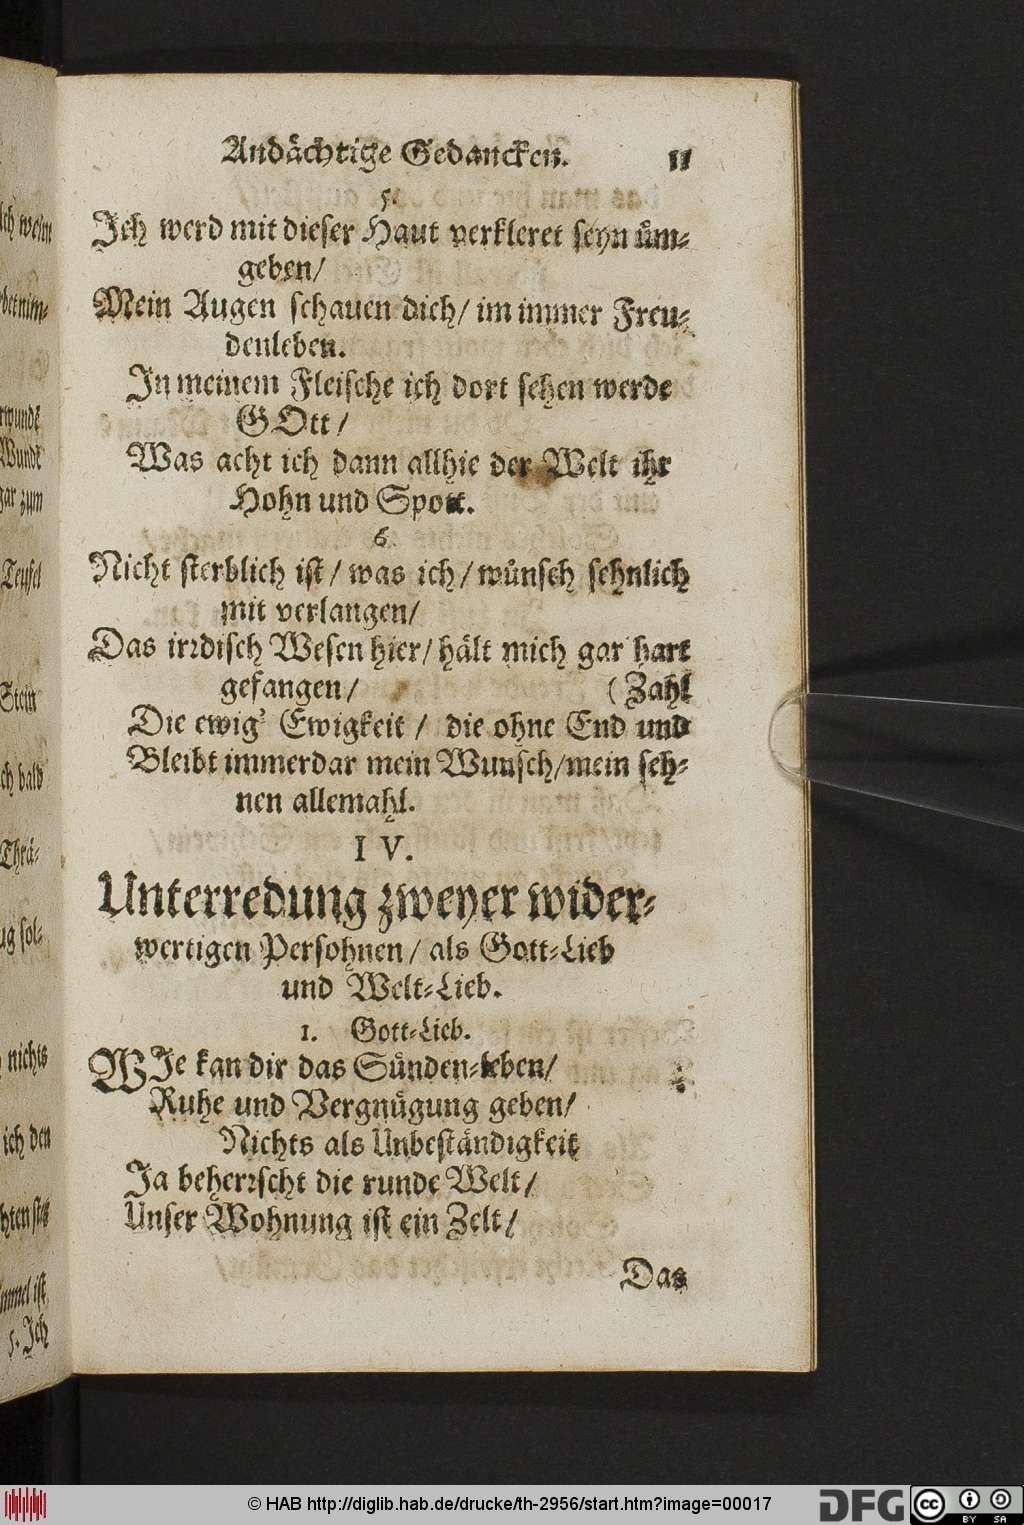 Andächtige Gedancken. 11
5.
Ich werd mit dieser Haut verkleret seyn üm-
geben/
Mein Augen schauen dich/ im immer Freu-
denleben.
In meinem Fleische ich dort sehen werde
GOtt/
Was acht ich dann allhie der Welt ihr
Hohn und Spott.
6.
Nicht sterblich ist/ was ich/ wünsch sehnlich
mit verlangen/
Das irrdisch Wesen hier/ hält mich gar hart
gefangen/ (Zahl
Die ewig' Ewigkeit / die ohne End und
Bleibt immerdar mein Wunsch/mein seh-
nen allemahl.
IV.
Unterredung zweyer wider-
wertigen Persohnen/ als Gott-Lieb
und Welt-Lieb.
1. Gott-Lieb.
WIe kan dir das Sünden-leben/
Ruhe und Vergnügung geben/
Nichts als Unbeständigkeit
Ja beherrscht die runde Welt/
Unser Wohnung ist ein Zelt/
Das
nichts
ich den
5. Ich
© HAB http://diglib.hab.de/drucke/th-2956/start.htm?image=00017
DFG
cc BY SA